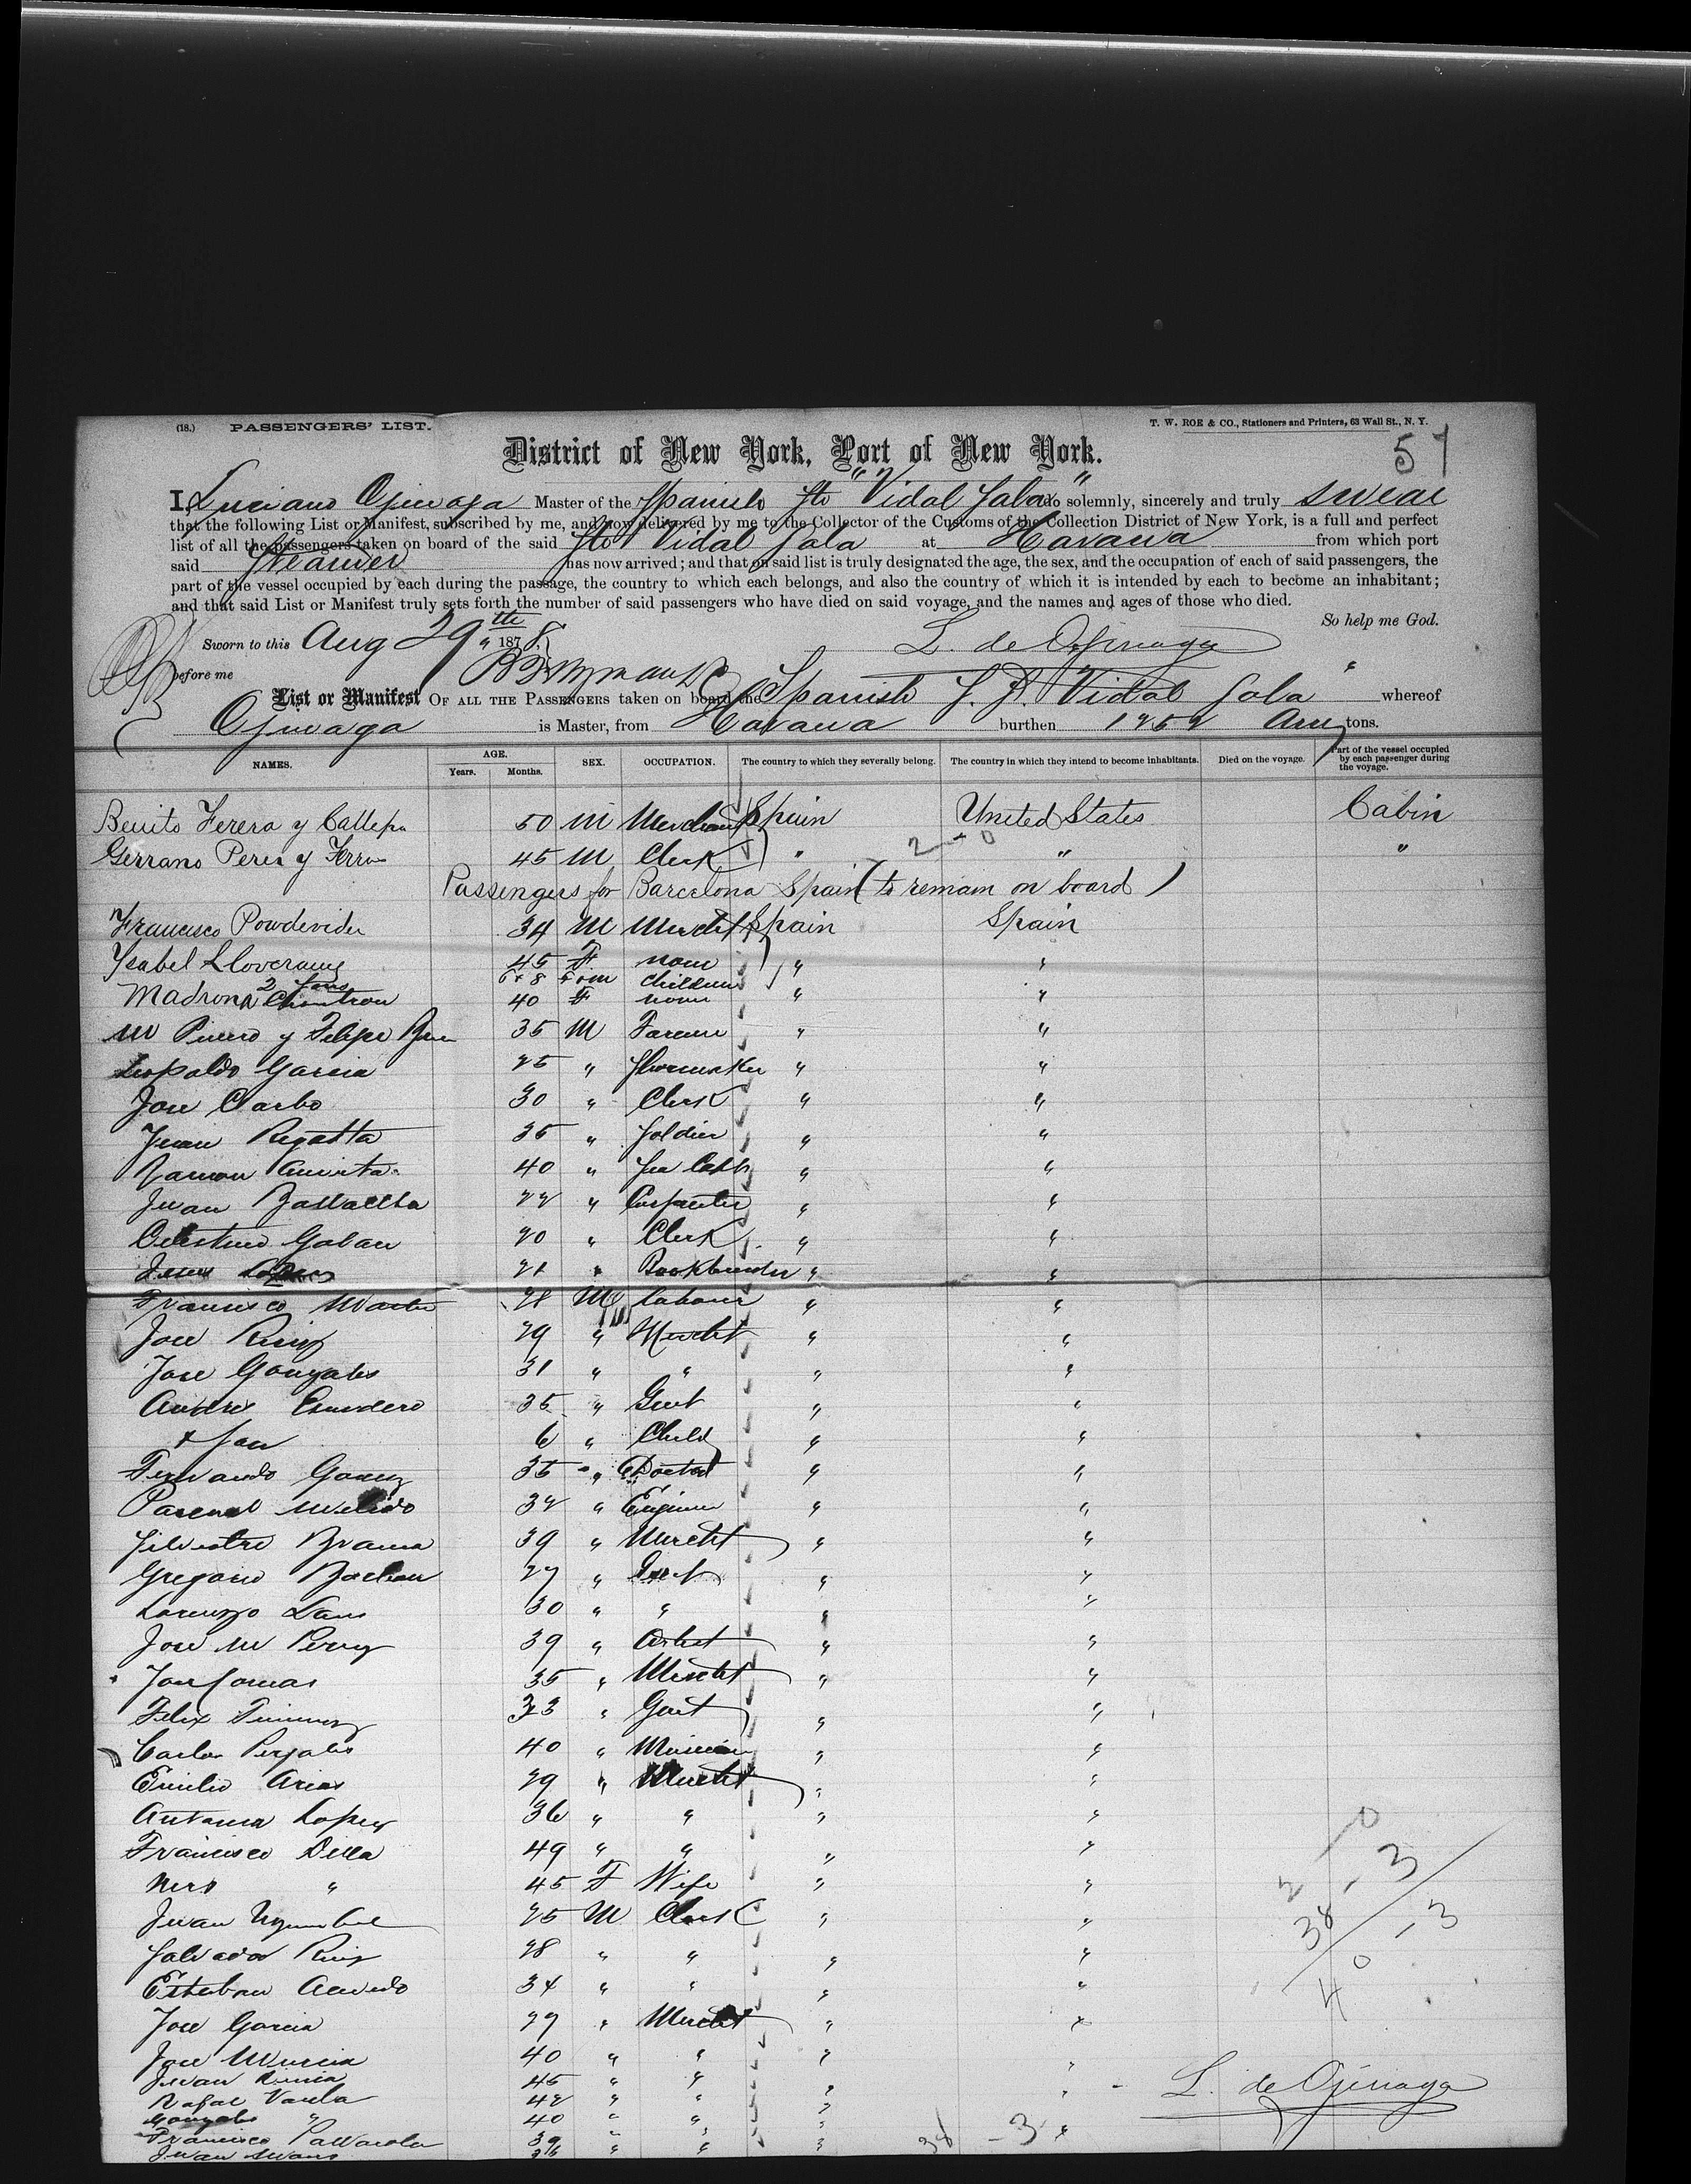 (18.) PASSENGERS' LIST. T. W. ROE & CO., Stationers and Printers, 63 Wall St., N. Y.
57
District of New York, Port of New York.
I, Luciano Ojinaga Master of the Spanish Str "Vidal Sala" do solemnly, sincerely and truly swear
that the following List or Manifest, subscribed by me, and now delivered by me to the Collector of the Customs of the Collection District of New York, is a full and perfect
list of all the passengers taken on board of the said Str Vidal Sala at Havana from which port
said Steamer has now arrived; and that on said list is truly designated the age, the sex, and the occupation of each of said passengers, the
part of the vessel occupied by each during the passage, the country to which each belongs, and also the country of which it is intended by each to become an inhabitant;
and that said List or Manifest truly sets forth the number of said passengers who have died on said voyage, and the names and ages of those who died.
So help me God.
Sworn to this Aug 29th 1878. L. de Ojinaga
before me
List or Manifest OF ALL THE PASSENGERS taken on board the Spanish S. S. Vidal Sala whereof
Ojinaga is Master, from Havana burthen 1252 tons.
NAMES. AGE. Years. Months. SEX. OCCUPATION. The country to which they severally belong. The country in which they intend to become inhabitants. Died on the voyage. Part of the vessel occupied by each passenger during the voyage.
Benito Ferera y 50 M Merchant Spain United States Cabin
Perez y 45 M Clerk " " "
2 - 0
Passengers for Barcelona Spain (to remain on board)
Francisco 34 M Mercht Spain Spain
Ysabel 45 F none " "
2 6 & 8 F & M children
Madrona 40 F none " "
M y Felipe 35 M " "
Leopoldo Garcia 25 " Shoemaker " "
Jose Carbo 30 " Clerk " "
Juan 35 " Soldier " "
Ramon 40 " Sea Capt " "
Juan 22 " Carpenter " "
Celestino Galan 20 " Clerk " "
Jesus 21 " Bookbinder " "
Francisco 28 M Labourer " "
Jose Ruiz 29 " Mercht " "
Jose Gonzales 31 " " " "
Andres Escudero 35 " Gent " "
& Son 6 " Child " "
Fernando Gomez 35 " Doctor " "
Pascual 32 " Engineer " "
Silvestre 39 " Mercht " "
Gregorio 27 " " "
Lorenzo 30 " " " "
Jose M Perez 39 " Artist " "
Jose Comas 35 " Mercht " "
Felix 33 " Gent " "
Carlos 40 " Musician " "
Emilio Arias 29 " Mercht " "
Antonia Lopez 36 " " " "
Francisco 49 " " " "
Mrs " 45 F Wife " "
Juan 25 M Clerk " "
Salvador Ruiz 28 " " " "
Esteban Acevedo 34 " " " "
Jose Garcia 29 " Mercht " "
Jose Murcia 40 " " " "
Juan 45 " " " "
Rafael Varela 42 " " " "
Gonzalo " 40 " " "
Francisco 39 " " " "
Juan 36 " " "
2 - 0
38 - 3
40 - 3
L. de Ojinaga
38 - 3